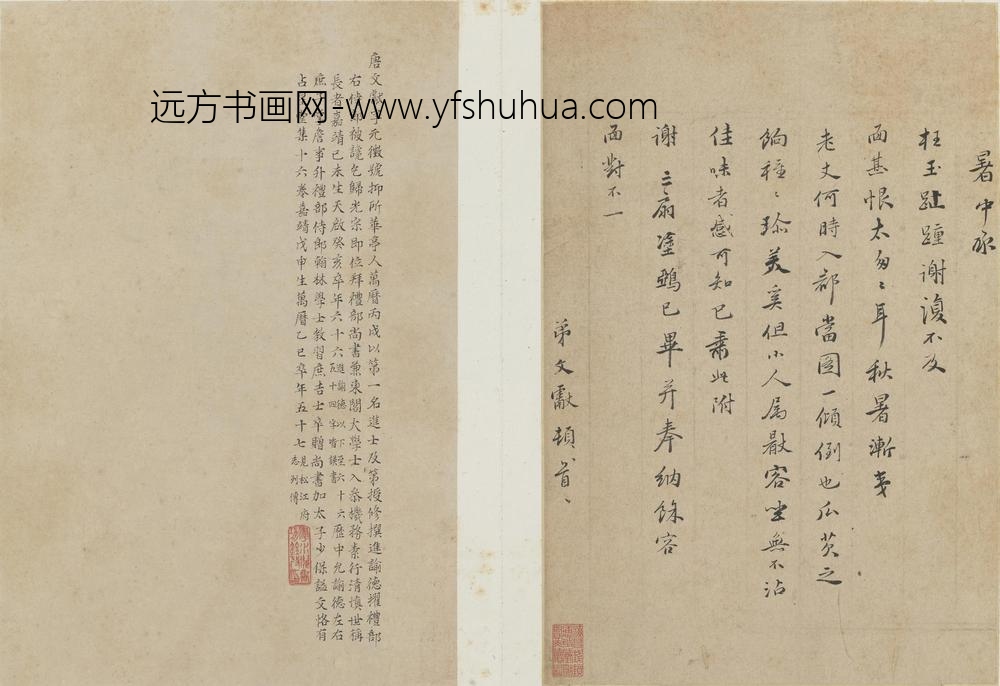 暑中承
枉玉趾踵謝復不及
面甚恨太匆々耳秋暑漸
老丈何時入都當圖一傾倒也瓜茨之
餉種々珍美奚但小人屬猒容坐無不沾
佳味者感可知已肅此附
謝二扇塗鴉已畢并奉納餘容
面對不一
弟文獻頓首、
唐文獻字元徵號抑所華亭人萬曆丙戌以第一名進士及第授修撰進諭德擢禮部
右侍郎被讒乞歸光宗即位拜禮部尚書兼東閣大學士入叅機務素行清慎世稱
長者嘉靖己未生天啟癸亥卒年六十六進諭德以下至六十六五十四字皆誤書歷中允諭德左右
庶子詹事升禮部侍郎翰林學士教習庶吉士卒贈尚書加太子少保謚文恪有
占集十六卷嘉靖戊申生萬曆乙巳卒年五十七見松江府志列傳
远方书画网-www.yfshuhua.com